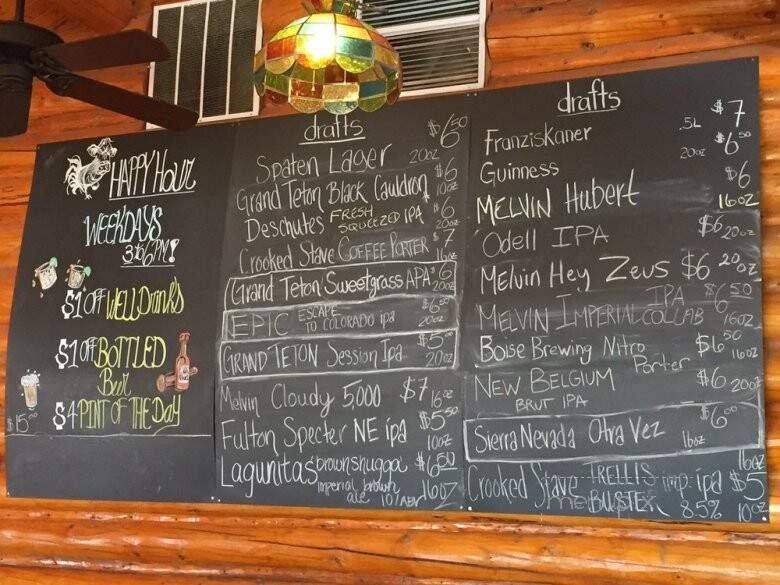 HAPPY HOUR
WEEKDAYS
3to6PM!
$1 OFF WELL DRINKS
$1 OFF BOTTLED
Beer
$4 PINT OF THE DAY
$15.00
drafts
Spaten Lager 20oz $6.50
Grand Teton Black Cauldron $6 10oz
Deschutes FRESH SQUEEZED IPA $6 20oz
Crooked Stave COFFEE PORTER $7 16oz
Grand Teton Sweetgrass APA $6 20oz
EPIC ESCAPE TO COLORADO ipa $6.50 20oz
GRAND TETON Session Ipa $5.00 20oz
Melvin Cloudy 5,000 $7 16oz
Fulton Specter NE ipa $5.50 10oz
Lagunitas brownshugga $6.50
imperial brown
ale 10% ABV 16oz
drafts
Franziskaner .5L $7
Guinness 20oz $6.50
MELVIN Hubert $6 16oz
Odell IPA $6 20oz
Melvin Hey Zeus $6 20oz
MELVIN IMPERIAL IPA COLLAB $6.50 16oz
Boise Brewing Nitro Porter $6.50 16oz
NEW BELGIUM $6 20oz
BRUT IPA
Sierra Nevada Otra Vez $6.00 16oz
Crooked Stave TRELLIS imp. ipa $5
BUSTER 8.5% 10oz